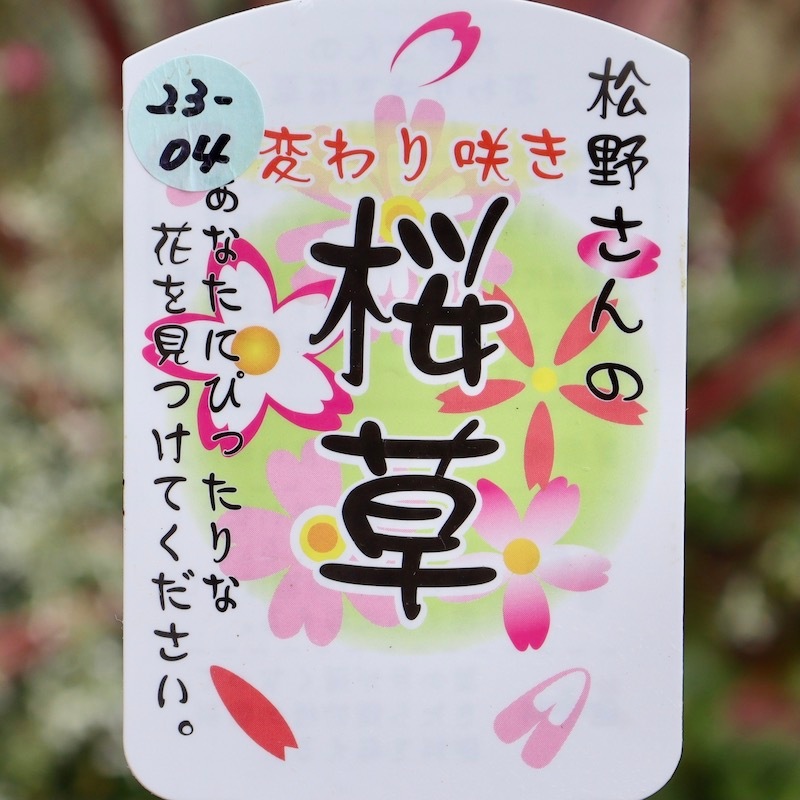 松野さんの
変わり咲き
桜草
めなたにぴったりな
花を見つけてください。
23-
04